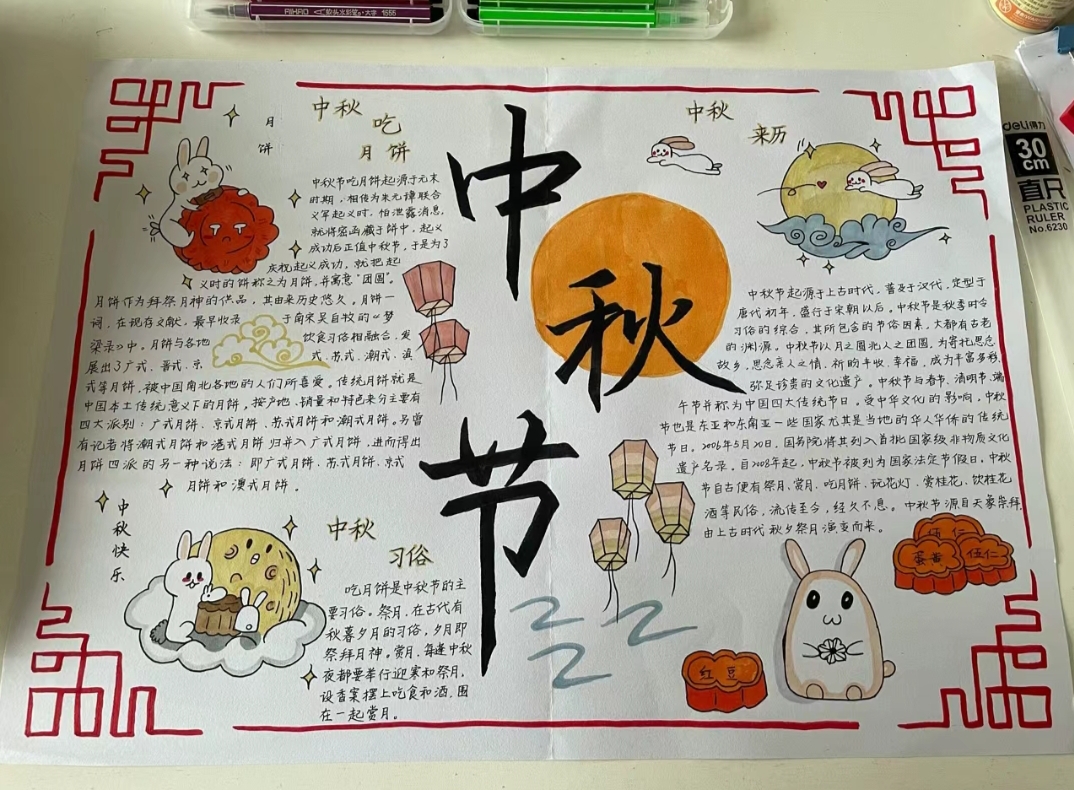 AIHAO 勾线水彩笔·大字 1555
中秋
吃
月饼
月
饼
中秋节吃月饼起源于元末
时期，相传为朱元璋联合
义军起义时，怕泄露消息，
就将密函藏于饼中，起义
成功后正值中秋节，于是为了
庆祝起义成功，就把起
义时的饼称之为月饼，并寓意“团圆”。
月饼作为拜祭月神的供品，其由来历史悠久，月饼一
词，在现存文献，最早收录于南宋吴自牧的《梦
梁录》中。月饼与各地饮食习俗相融合，发
展出了广式、晋式、京式、苏式、潮式、滇
式等月饼，被中国南北各地的人们所喜爱。传统月饼就是
中国本土传统意义下的月饼，按产地、销量和特色来分主要有
四大派别：广式月饼、京式月饼、苏式月饼和潮式月饼。另曾
有记者将潮式月饼和港式月饼归并入广式月饼，进而得出
月饼四派的另一种说法：即广式月饼、苏式月饼、京式
月饼和澳式月饼。
中秋快乐
中秋
习俗
吃月饼是中秋节的主
要习俗。祭月，在古代有
秋暮夕月的习俗，夕月即
祭拜月神。赏月，每逢中秋
夜都要举行迎寒和祭月，
设香案摆上吃食和酒，围
在一起赏月。
中
秋
节
中秋
来历
中秋节起源于上古时代，普及于汉代，定型于
唐代初年，盛行于宋朝以后。中秋节是秋季时令
习俗的综合，其所包含的节俗因素，大都有古老
的渊源。中秋节以月之圆兆人之团圆，为寄托思念
故乡，思念亲人之情，祈盼丰收、幸福，成为丰富多彩、
弥足珍贵的文化遗产。中秋节与春节、清明节、端
午节并称为中国四大传统节日。受中华文化的影响，中秋
节也是东亚和东南亚一些国家尤其是当地的华人华侨的传统
节日。2006年5月20日，国务院将其列入首批国家级非物质文化
遗产名录。自2008年起，中秋节被列为国家法定节假日。中秋
节自古便有祭月、赏月、吃月饼、玩花灯、赏桂花、饮桂花
酒等民俗，流传至今，经久不息。中秋节源自天象崇拜，
由上古时代秋夕祭月演变而来。
蛋黄
伍仁
红豆
deli得力
30
cm
直尺
PLASTIC
RULER
No.6230